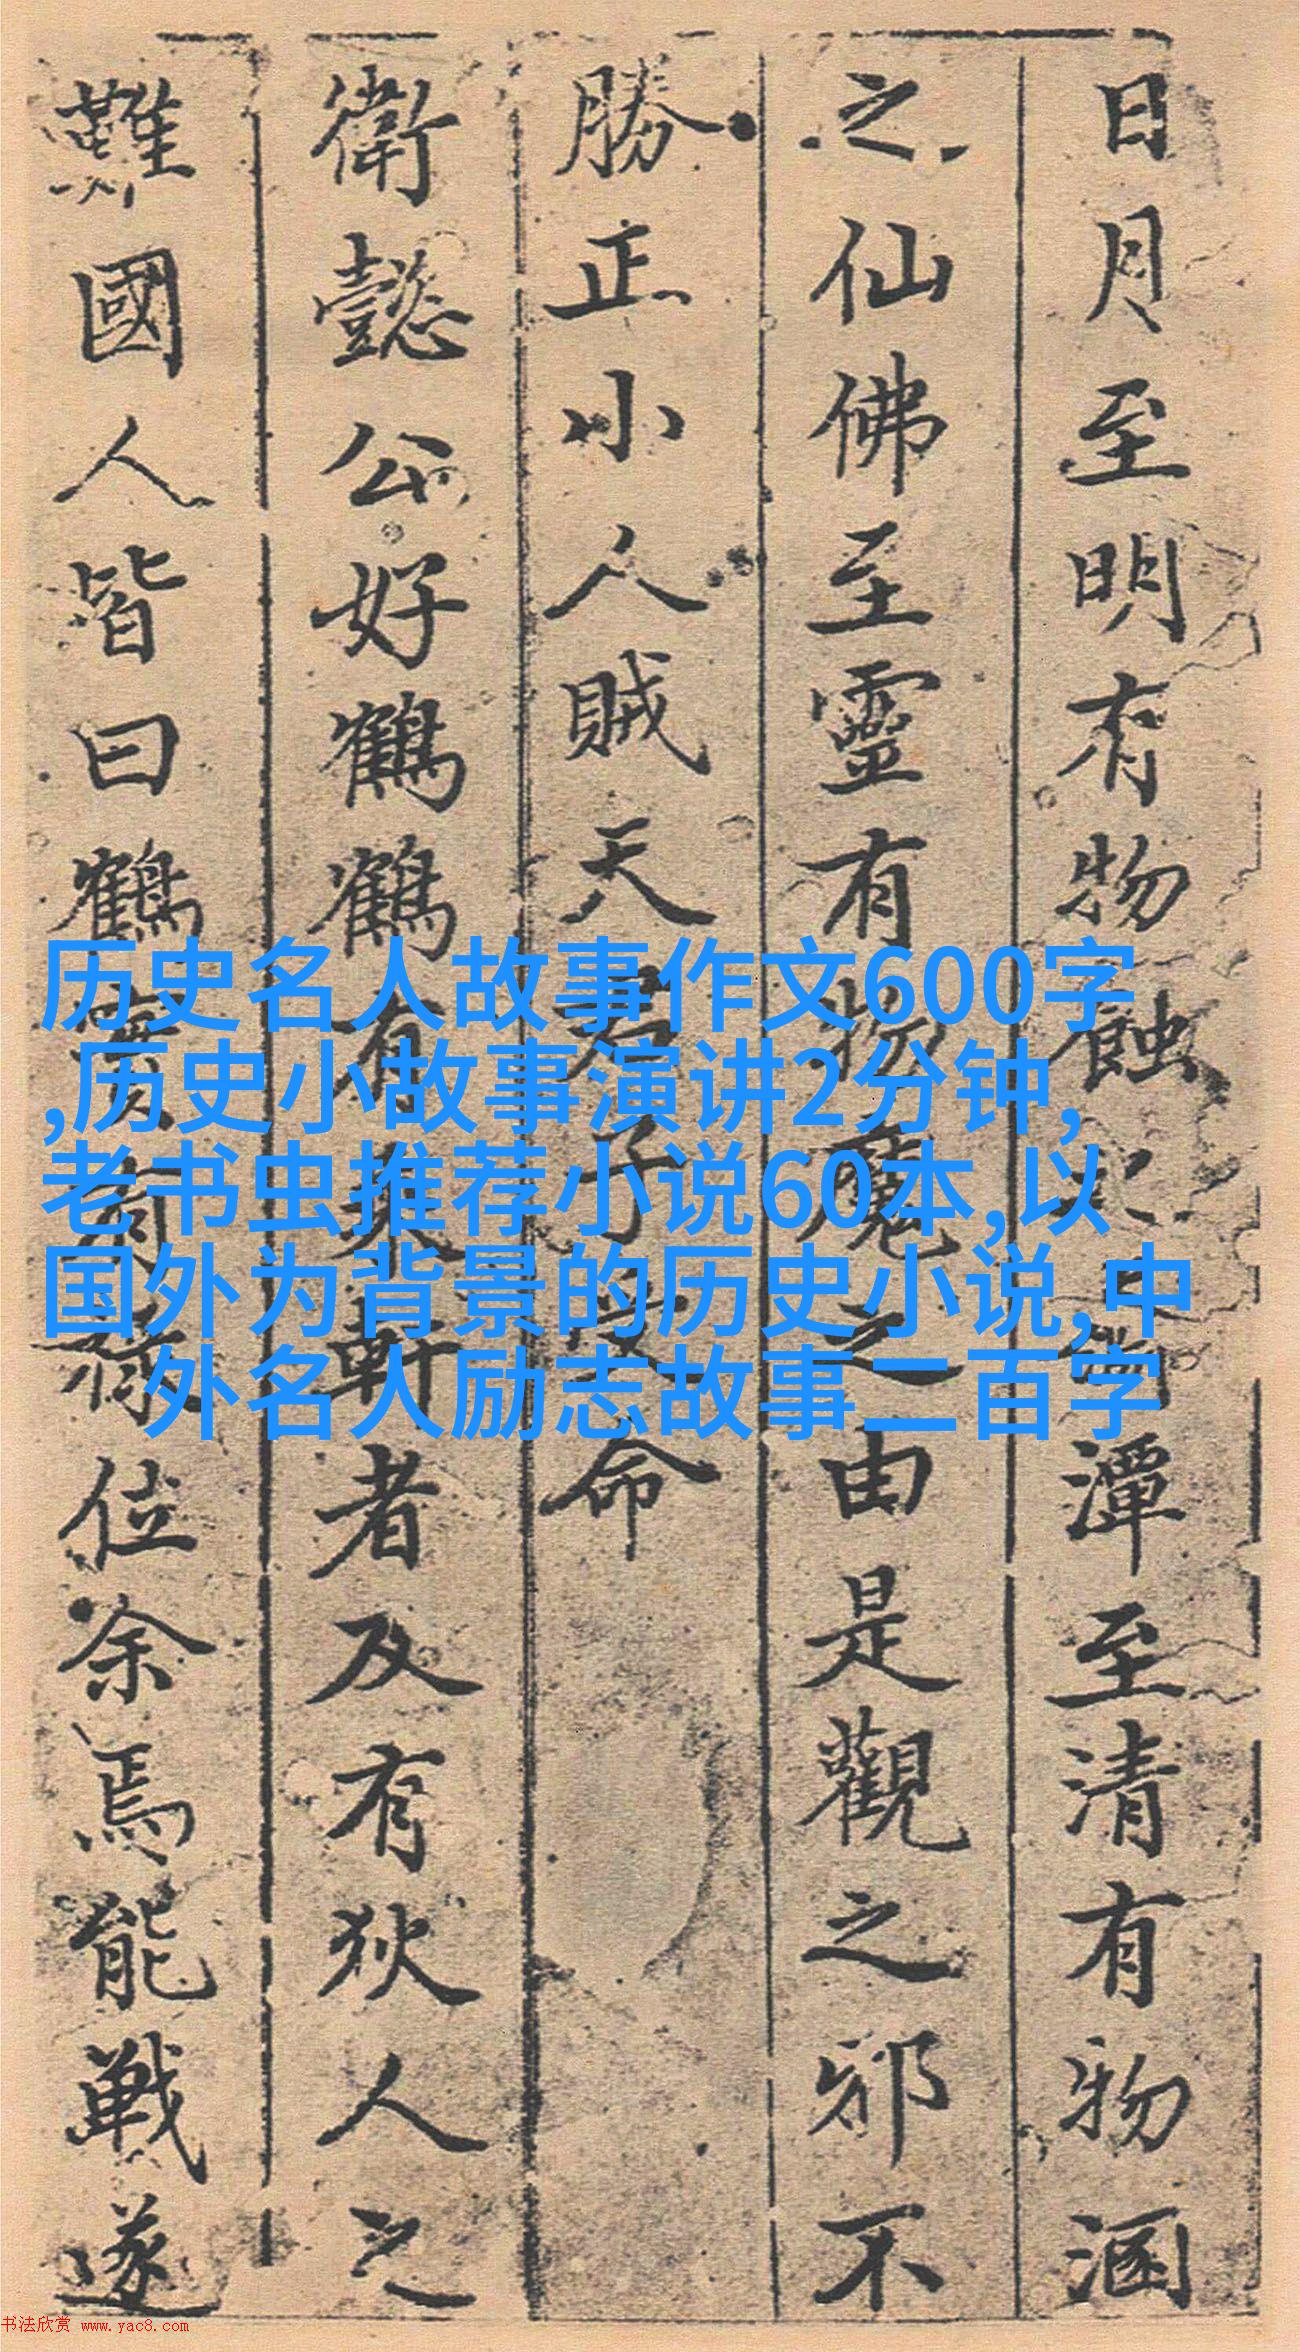 日月至明有物蝕之潭至清有物涵
之仙佛至靈有物魔之由是觀之邪不
勝正小人賊天君子命
衛懿公好鶴鶴有乘軒者及有狄人之
難國人皆曰鶴實有祿位余焉能戰遂
历史名人故事作文600字
,历史小故事演讲2分钟,
老书虫推荐小说60本,以
国外为背景的历史小说,中
外名人励志故事二百字
书法欣赏 www.yac8.com